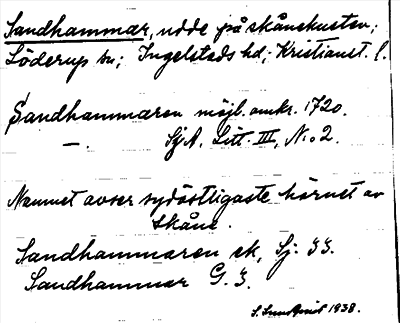 Sandhammar, udde på skånekusten;
Löderup sn; Ingelstads hd; Kristianst. l.
Sandhammaren möjl. omkr. 1720.
—. SjA, Litt. III, No 2.
Namnet avser sydöstligaste hörnet av
Skåne.
Sandhammaren ek, Sj.
Sandhammar G.
S. Sundqvist 1938.